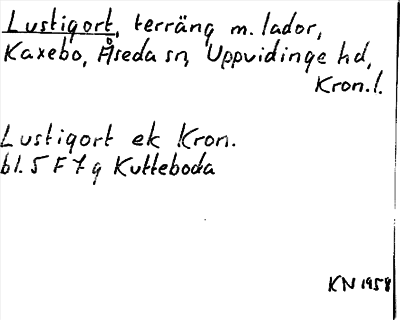 Lustigort, terräng m. lador,
Kaxebo, Åseda sn, Uppvidinge hd,
Kron.l.
Lustigort ek Kron.
bl. 5 F 7 g Kutteboda
KN 1958